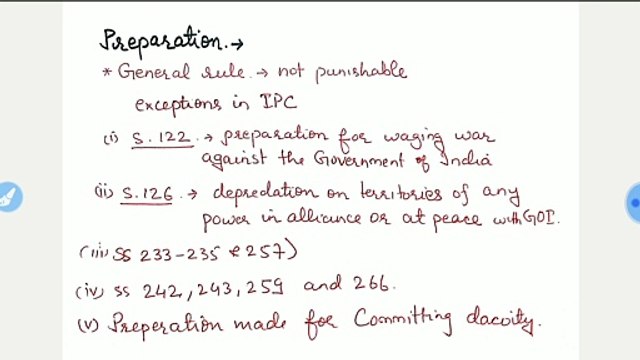 Preparation. →
* General rule → not punishable
exceptions in IPC
(i) S.122 → preparation for waging war
against the Government of India
(ii) S.126 → depredation on territories of any
power in alliance or at peace with GOI.
(iii) SS 233-235 & 257)
(iv) SS 242, 243, 259 and 266.
(v) Preperation made for Committing dacoity.